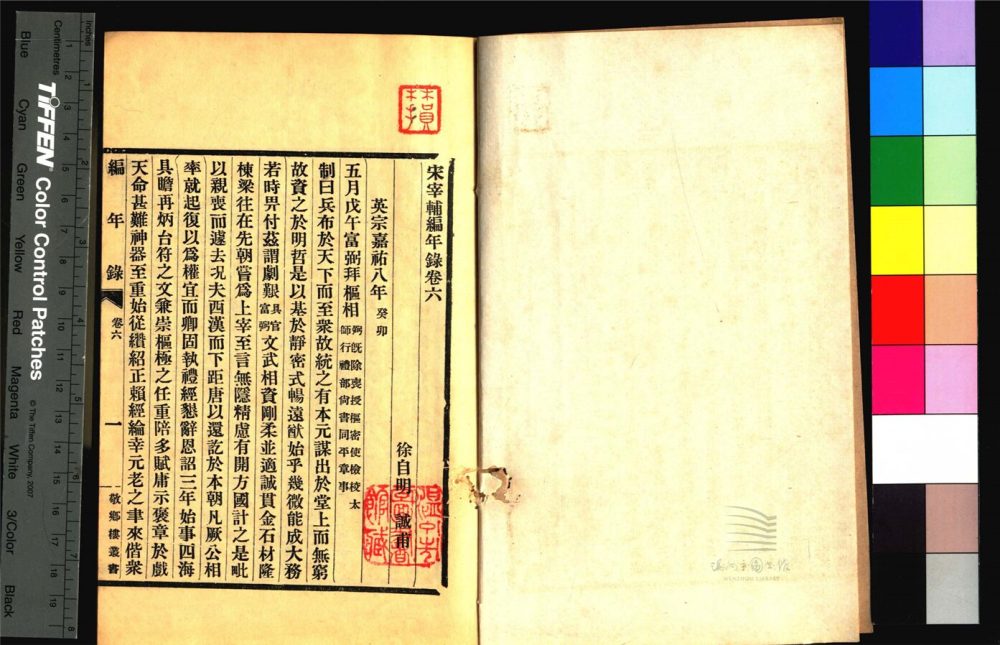 宋宰輔編年錄卷六
徐自明 誠甫
英宗嘉祐八年 癸卯
五月戊午富弼拜樞相 弼旣除喪授樞密使檢校太師行禮部尙書同平章事
制曰兵布於天下而至衆故統之有本元謀出於堂上而無窮
故資之於明哲是以基於靜密式暢遠猷始乎幾微能成大務
若時畀付茲謂劇艱具官富弼文武相資剛柔並適誠貫金石材隆
棟梁往在先朝嘗爲上宰至言無隱精慮有開方國計之是毗
以親喪而遽去況夫西漢而下距唐以還訖於本朝凡厥公相
率就起復以爲權宜而卿固執禮經懇辭恩詔三年始事四海
具瞻再炳台符之文兼崇樞極之任重陪多賦庸示褒章於戲
天命甚難神器至重始從纘紹正賴經綸幸元老之聿來偕衆
編年錄 卷六 一 敬鄉樓叢書
Inches
Centimetres
1 2 3 4 5 6 7 8 9 10 11 12 13 14 15 16 17 18 19
1 2 3 4 5 6 7 8
TIFFEN Color Control Patches
© The Tiffen Company, 2007
Blue Cyan Green Yellow Red Magenta White 3/Color Black
WENZHOU LIBRARY